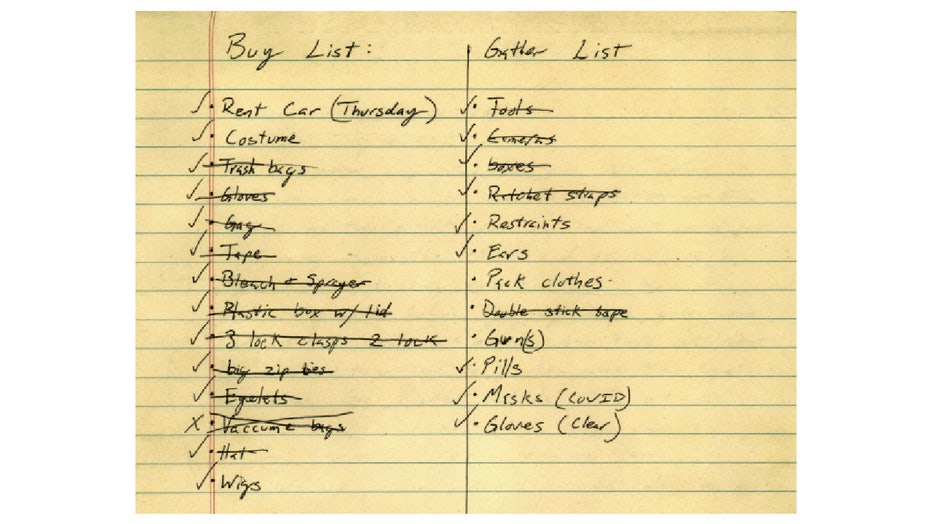 Buy List:
Rent Car (Thursday)
Costume
Trash bags
Gloves
Gag
Tape
Bleach + Sprayer
Plastic box w/ lid
3 lock clasps 2 lock
big zip ties
Eyelets
Vaccume bags
Hat
Wigs
Gather List
Tools
Cameras
boxes
Ratchet straps
Restraints
Ears
Pack clothes
Double stick tape
Gun(s)
Pills
Masks (COVID)
Gloves (Clear)